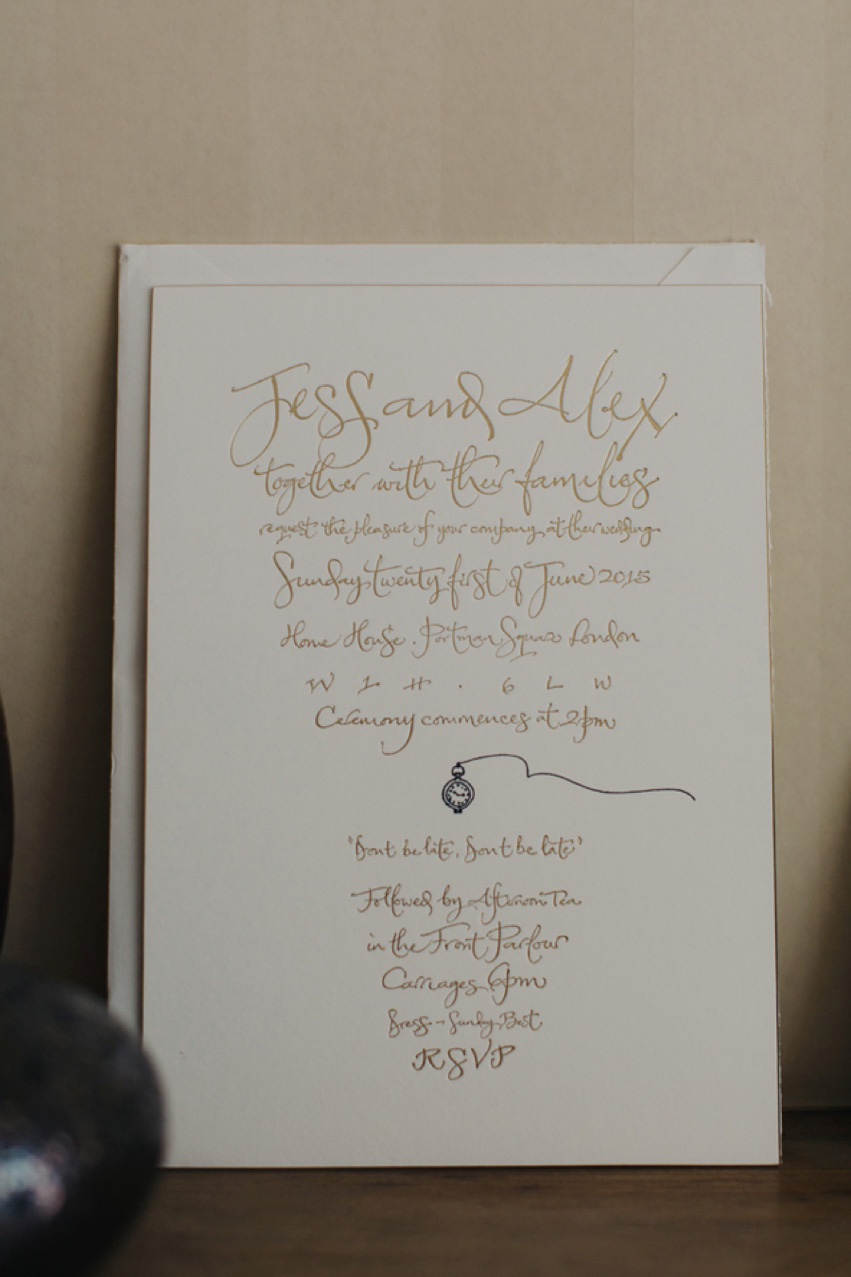 Jess and Alex
together with their families
request the pleasure of your company, at their wedding
Sunday twenty first of June 2015
Home House . Portman Square London
W 1 H . 6 L W
Ceremony commences at 2pm
'Dont be late, Dont be late'
Followed by Afternoon Tea
in the Front Parlour
Carriages 6pm
Dress - Sunday Best
RSVP